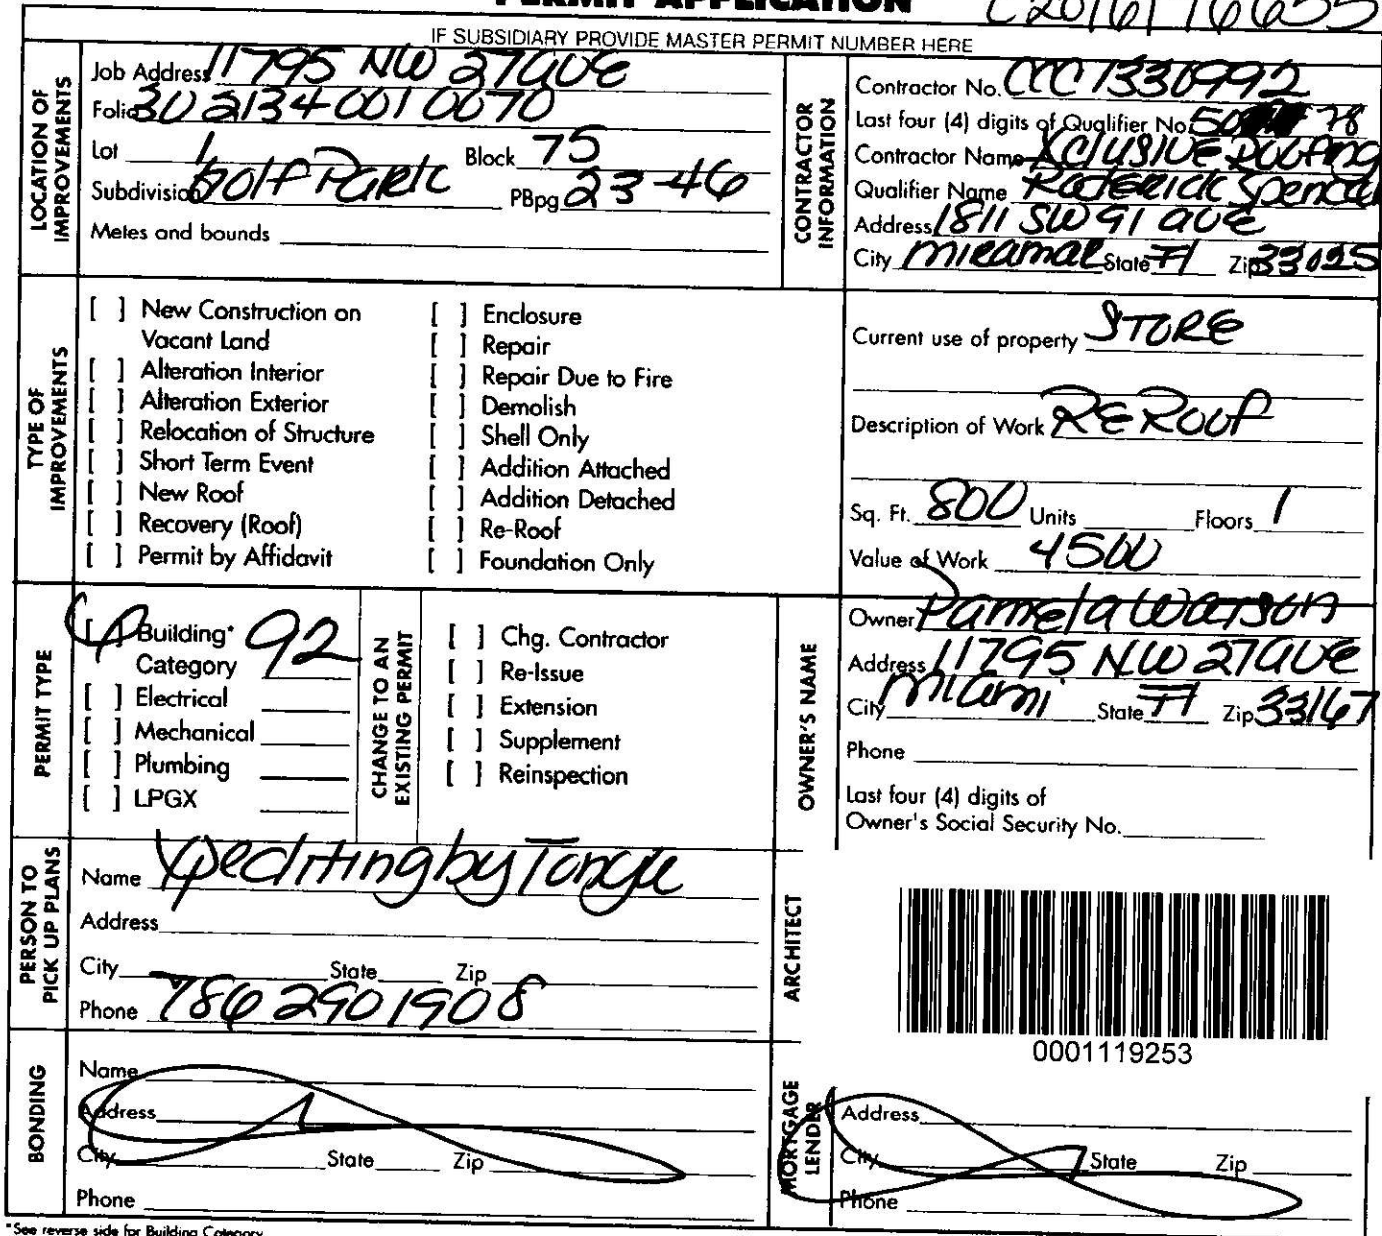 PERMIT APPLICATION C2016176655
IF SUBSIDIARY PROVIDE MASTER PERMIT NUMBER HERE
LOCATION OF IMPROVEMENTS
Job Address 11795 NW 27 AVE
Folio 30 2134 001 0070
Lot 1 Block 75
Subdivision Golf Park PBpg 23-46
Metes and bounds
CONTRACTOR INFORMATION
Contractor No. CCC1330992
Last four (4) digits of Qualifier No. 78
Contractor Name Xclusive Roofing
Qualifier Name Roderick
Address 1811 SW 91 AVE
City Miramar State Fl Zip 33025
TYPE OF IMPROVEMENTS
[ ] New Construction on Vacant Land
[ ] Alteration Interior
[ ] Alteration Exterior
[ ] Relocation of Structure
[ ] Short Term Event
[ ] New Roof
[ ] Recovery (Roof)
[ ] Permit by Affidavit
[ ] Enclosure
[ ] Repair
[ ] Repair Due to Fire
[ ] Demolish
[ ] Shell Only
[ ] Addition Attached
[ ] Addition Detached
[ ] Re-Roof
[ ] Foundation Only
Current use of property STORE
Description of Work REROOF
Sq. Ft. 800 Units Floors 1
Value of Work 4500
PERMIT TYPE
[ ] Building* 92
Category
[ ] Electrical
[ ] Mechanical
[ ] Plumbing
[ ] LPGX
CHANGE TO AN EXISTING PERMIT
[ ] Chg. Contractor
[ ] Re-Issue
[ ] Extension
[ ] Supplement
[ ] Reinspection
OWNER'S NAME
Owner Pamela Watson
Address 11795 NW 27 AVE
City Miami State Fl Zip 33167
Phone
Last four (4) digits of
Owner's Social Security No.
PERSON TO PICK UP PLANS
Name Xpediting by
Address
City State Zip
Phone 786 290 1908
ARCHITECT
0001119253
BONDING
Name
Address
City State Zip
Phone
MORTGAGE LENDER
Address
City State Zip
Phone
*See reverse side for Building Category